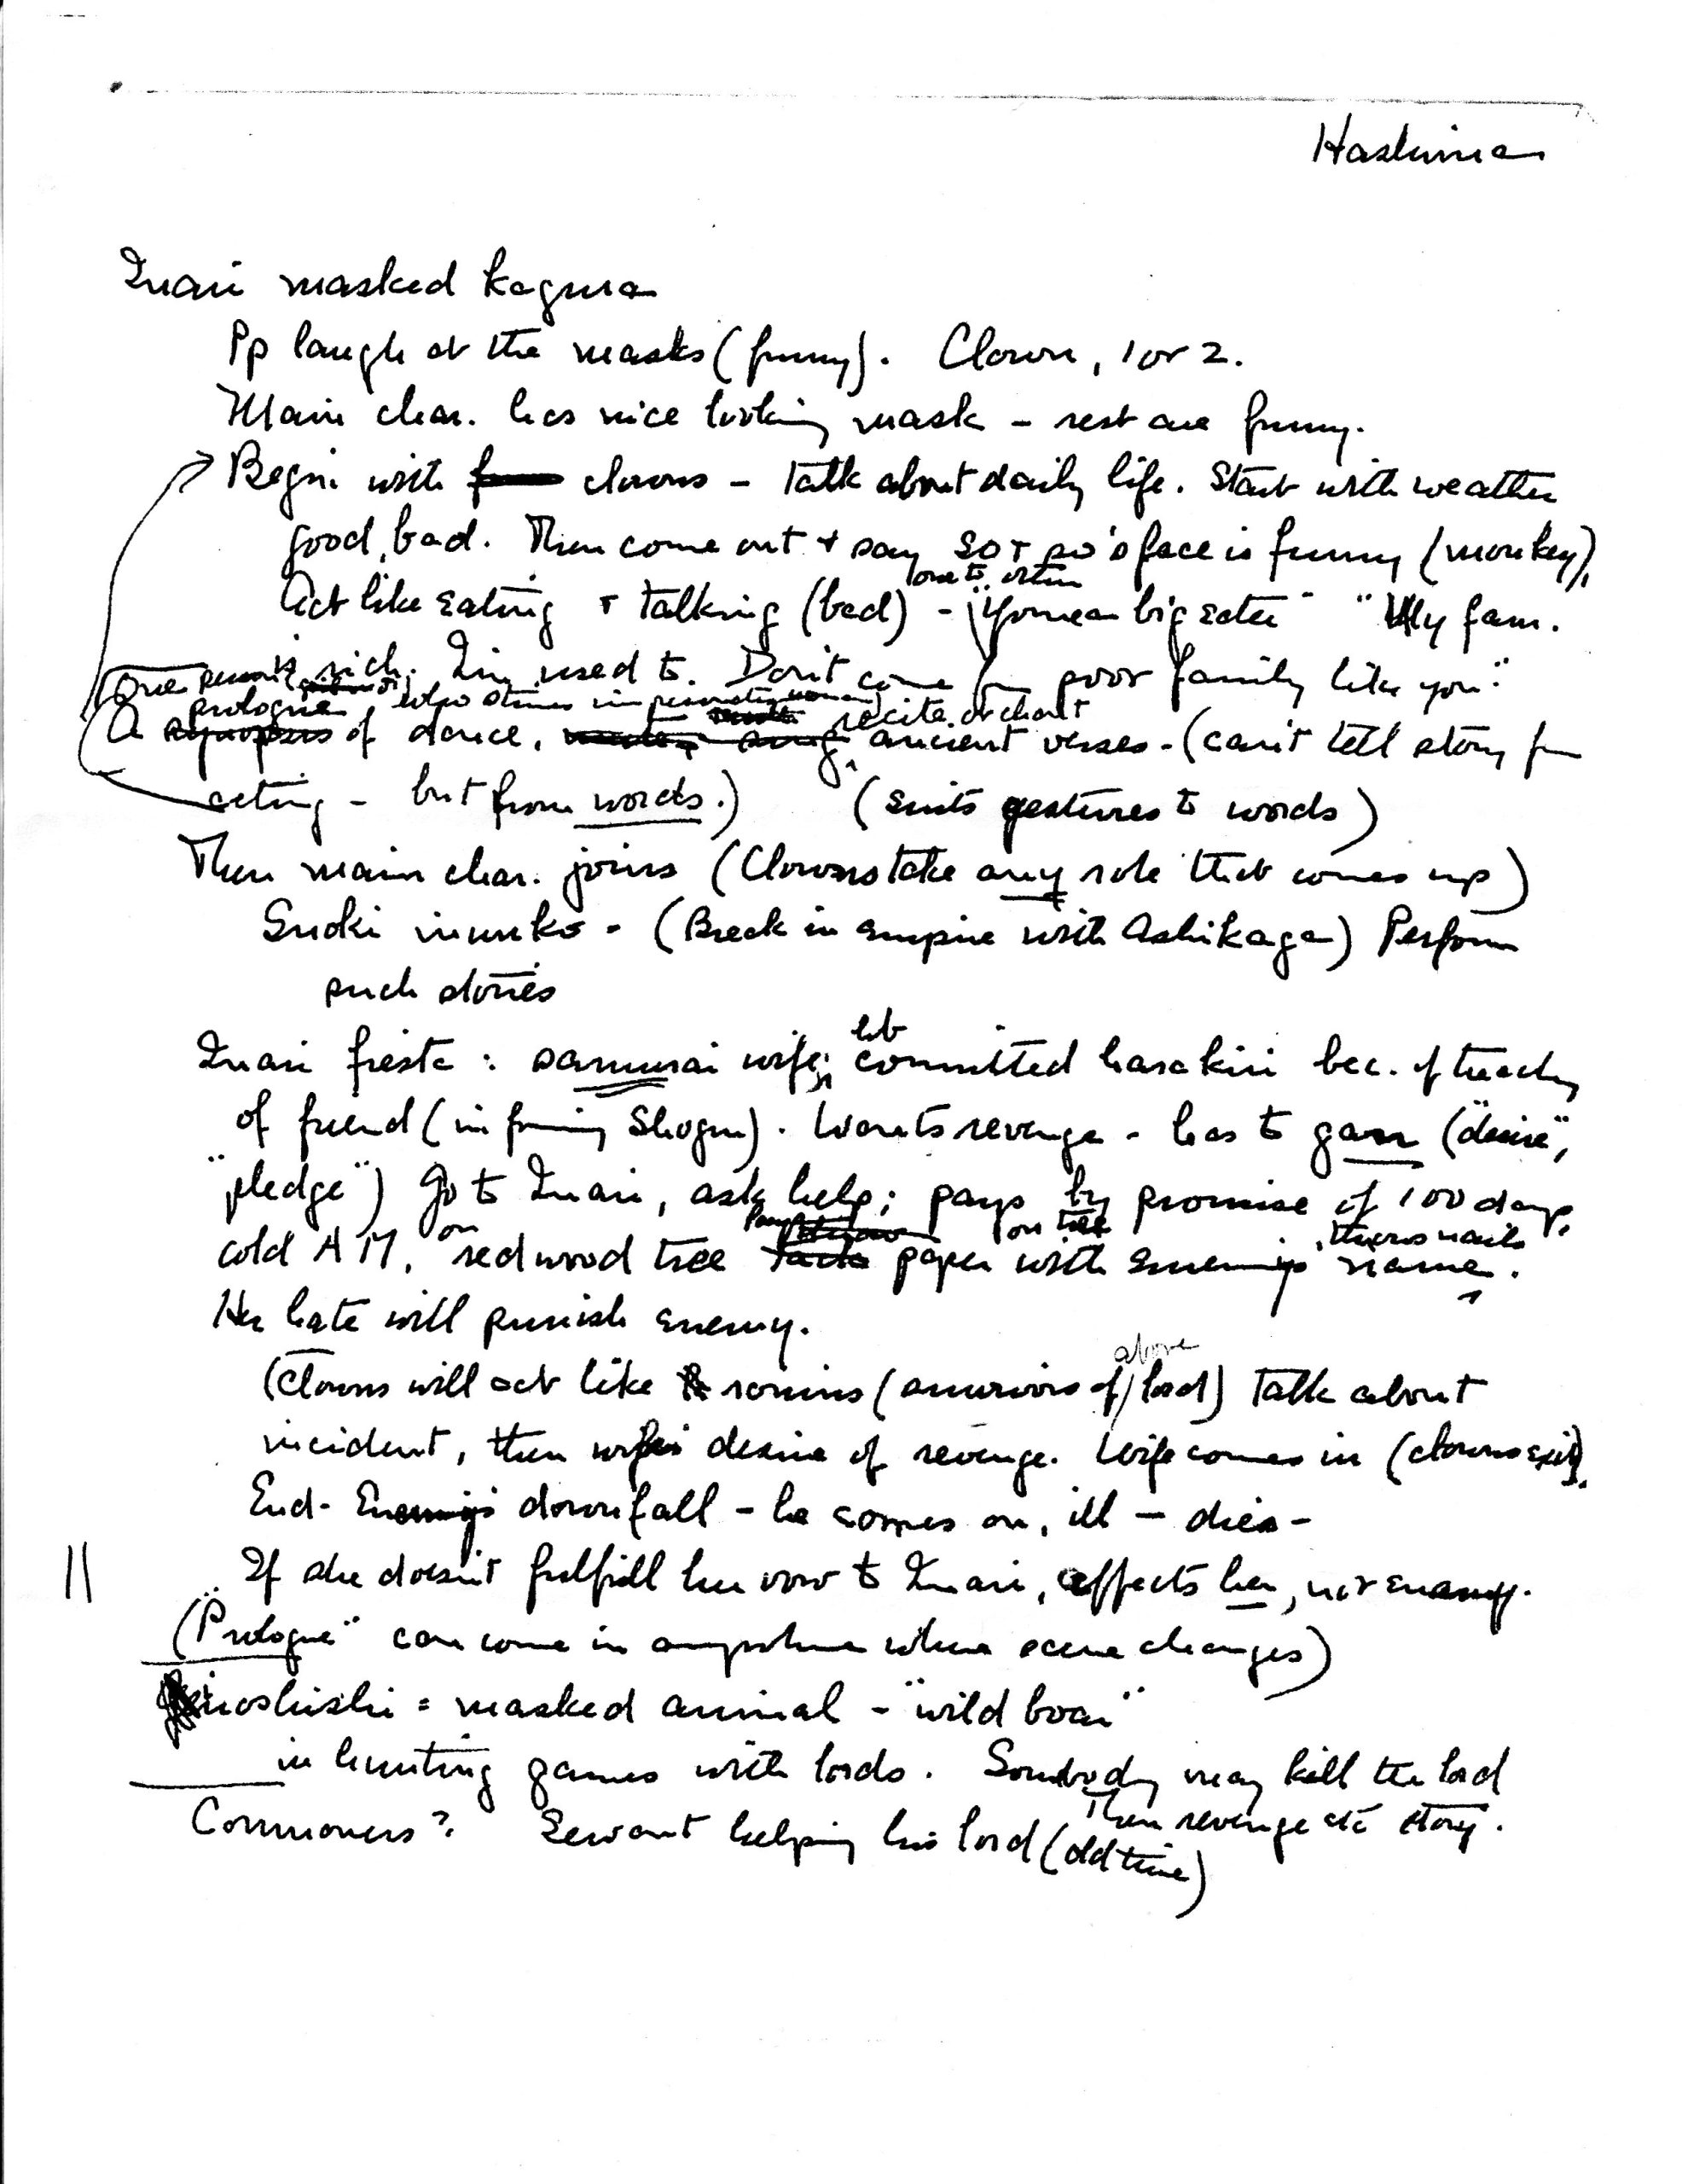 Hashima
Inari masked kagura
Pp laugh at the masks (funny). Clown, 1 or 2.
Main char. has nice looking mask - rest are funny.
Begin with clowns - talk about daily life. Start with weather
good, bad. Then come out + say so + so's face is funny (monkey),
one to other
Act like eating + talking (bad) - "You're a big eater" "My fam.
is rich. I'm used to. Don't come fm poor family like you."
(One person who stimes woman)
prologue recite or chant
A of dance, ancient verses - (can't tell story fm
acting - but from words.) (suits gestures to words)
Then main char. joins (Clowns take any role that comes up)
- (Break in empire with Ashikaga) Perform
such stories
hb
Inari fiesta: samurai wife, committed harakiri bec. of treachy
of friend (in fming Shogun). Wants revenge - has to gan ("desire",
"pledge") Go to Inari, ask help; pays by promise of 100 days,
on on tree , throws nails
cold AM, redwood tree paper with enemy's name.
Her hate will punish enemy.
above
(Clowns will act like ronins (survivors of lord) talk about
incident, then wife's desire of revenge. Wife comes in (clowns exit).
End - Enemy's downfall - he comes on, ill - dies -
If she doesn't fulfill her vow to Inari, affects her, not enemy.
("Prologue" can come in anywhere when scene changes)
inoshishi = masked animal - "wild boar"
in hunting games with lords. Somebody may kill the lord
Then revenge etc story.
Commoners? Servant helping his lord (old time)